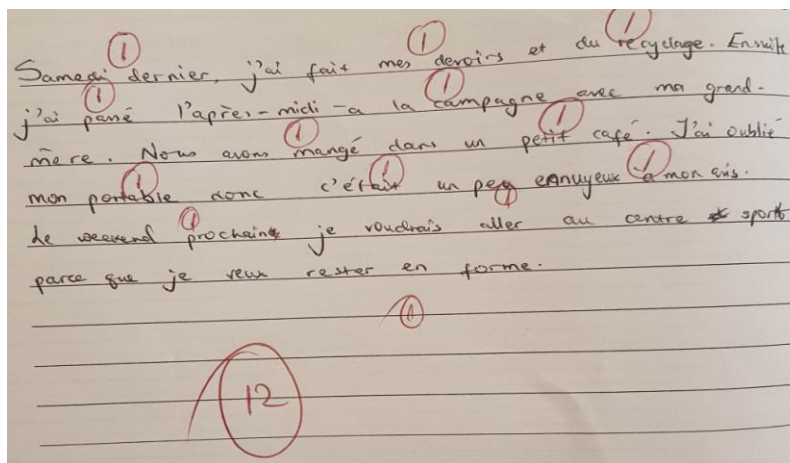 Samedi dernier, j'ai fait mes devoirs et du recyclage. Ensuite
j'ai passé l'après-midi à la campagne avec ma grand-
mère. Nous avons mangé dans un petit café. J'ai oublié
mon portable donc c'était un peu ennuyeux à mon avis.
Le weekend prochain je voudrais aller au centre sports
parce que je veux rester en forme.
12